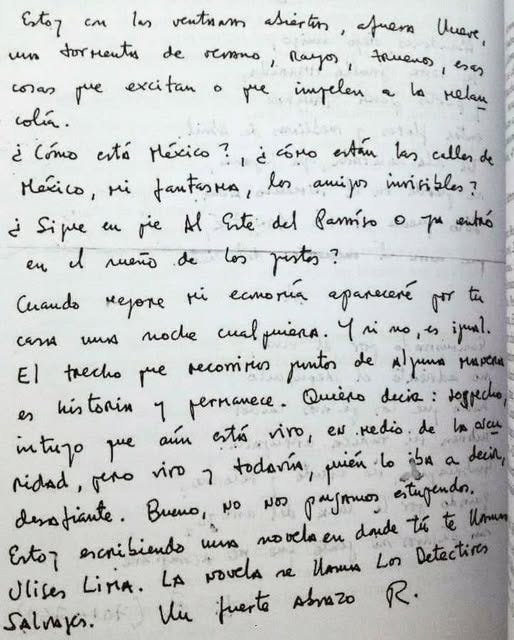 Estoy con las ventanas abiertas, afuera llueve,
una tormenta de verano, rayos, truenos, esas
cosas que excitan o que impelen a la melan
colía.
¿Cómo está México?, ¿cómo están las calles de
México, mi fantasma, los amigos invisibles?
¿Sigue en pie Al Este del Paraíso o ya entró
en el sueño de los justos?
Cuando mejore mi economía apareceré por tu
casa una noche cualquiera. Y si no, es igual.
El trecho que recorrimos juntos de alguna manera
es historia y permanece. Quiero decir: sospecho,
intuyo que aún está vivo, en medio de la oscu
ridad, pero vivo y todavía, quién lo iba a decir,
desafiante. Bueno, no nos pongamos estupendos.
Estoy escribiendo una novela en donde tú te llamas
Ulises Lima. La novela se llama Los Detectives
Salvajes. Un fuerte abrazo R.